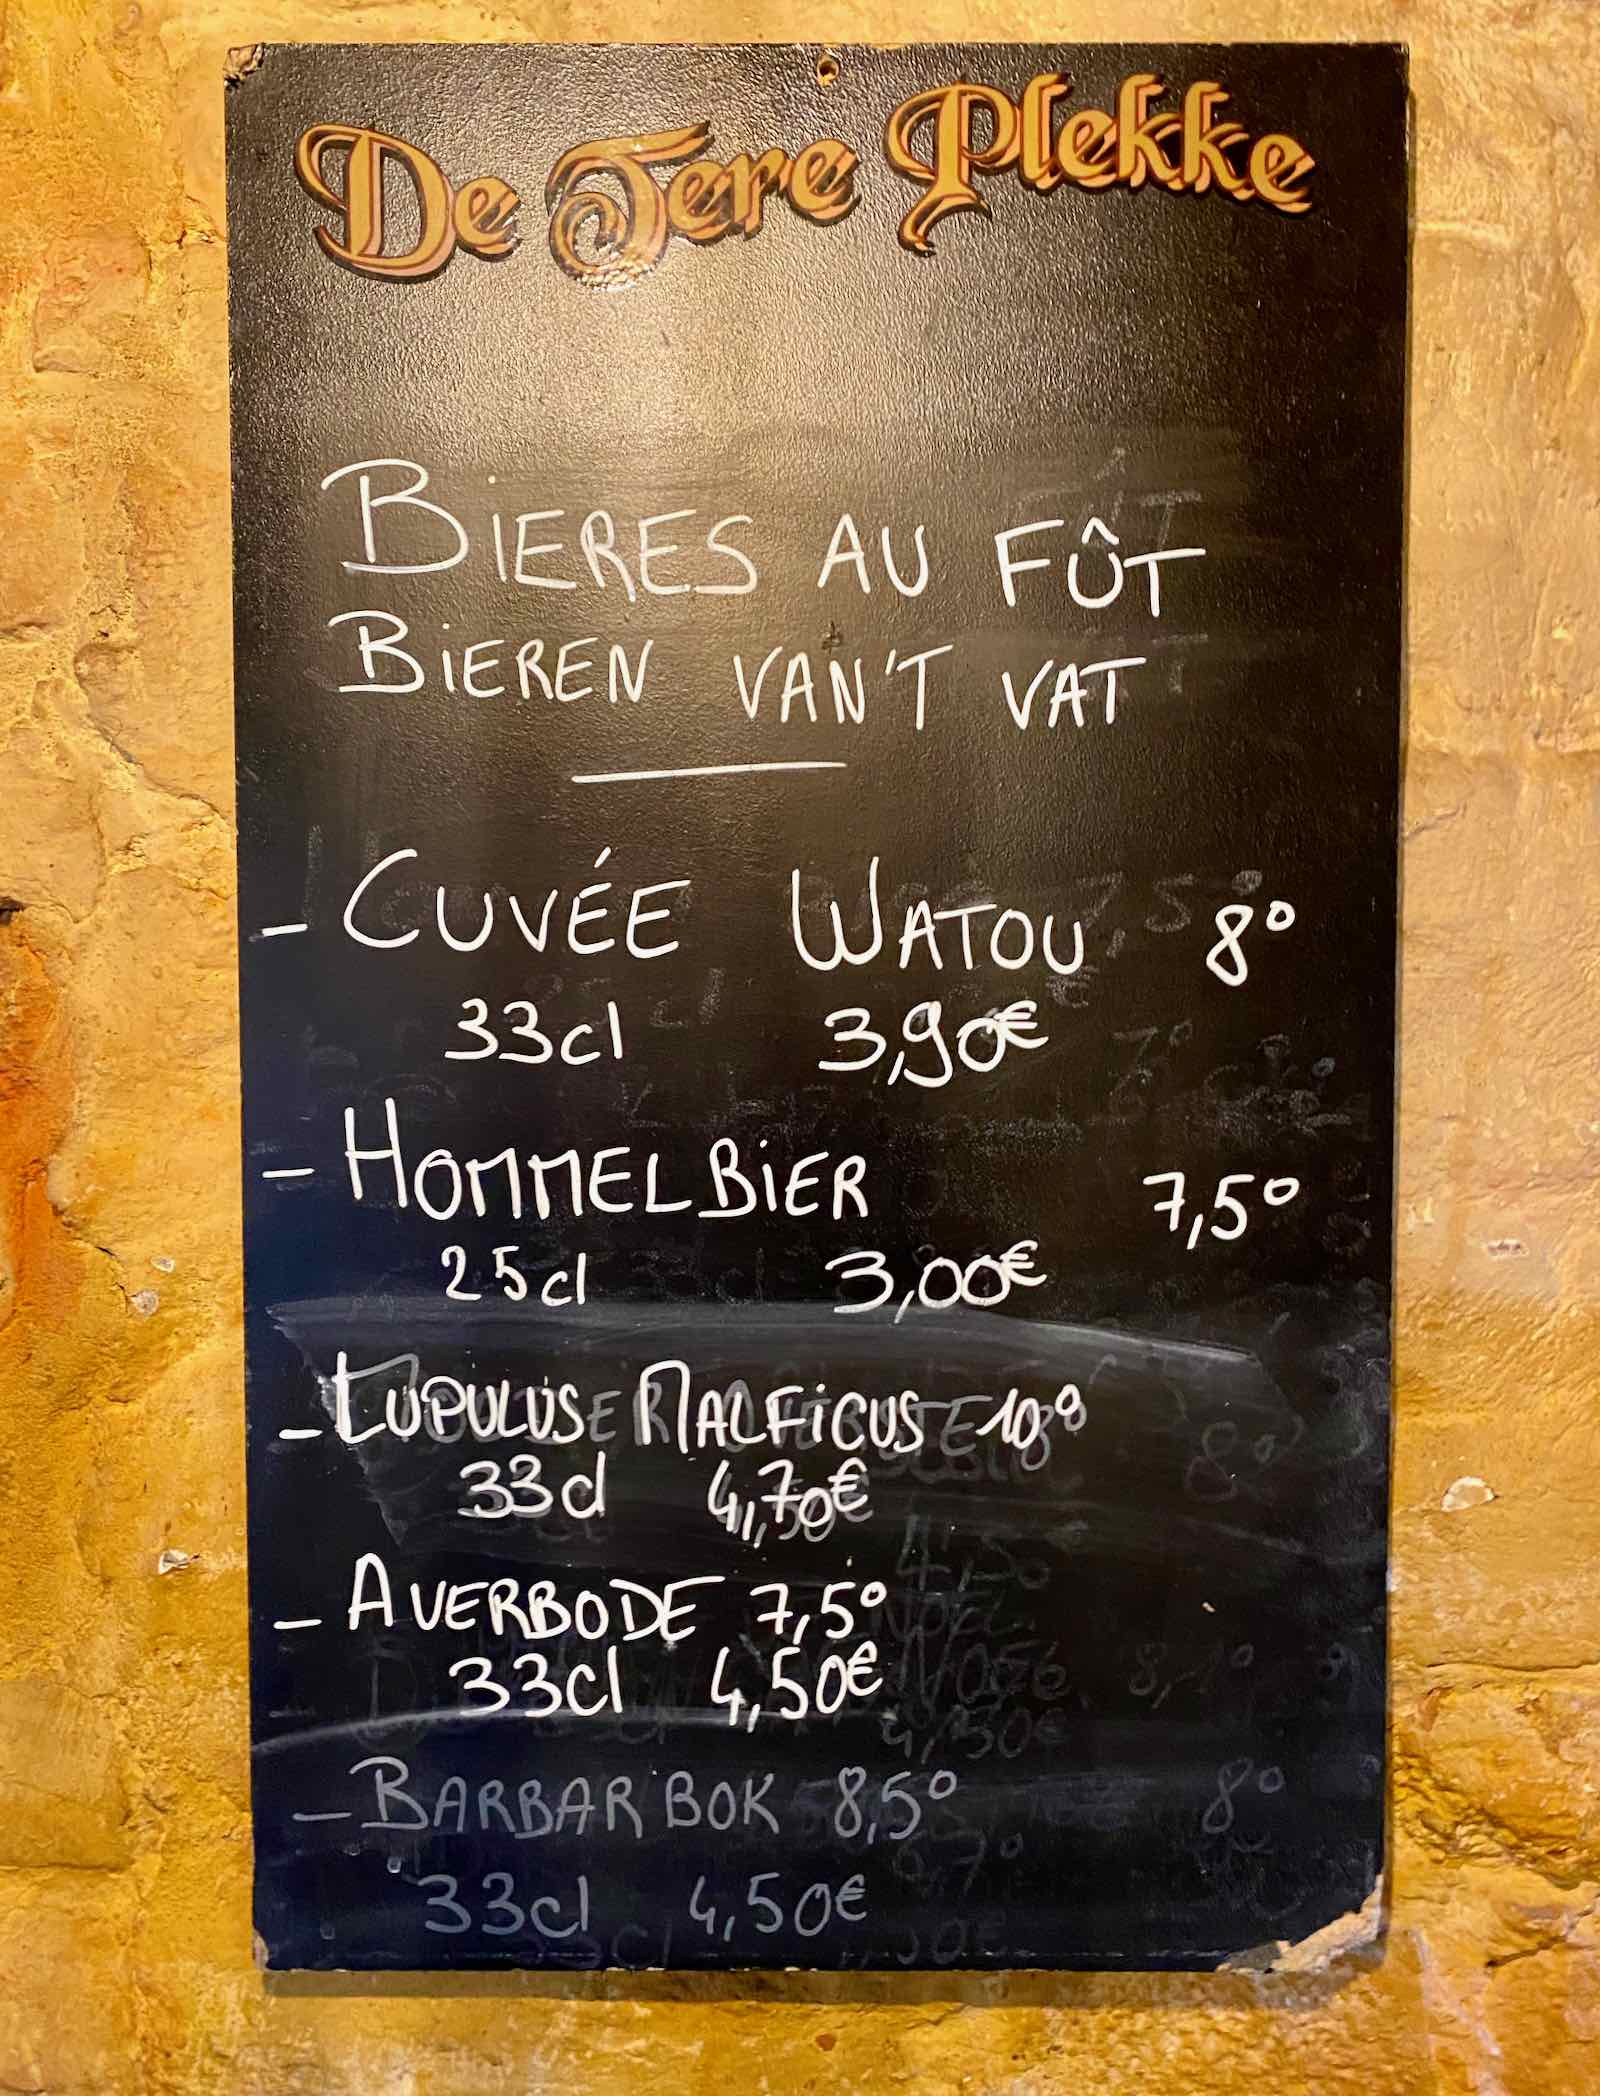 De Tere Plekke
BIERES AU FÛT
BIEREN VAN'T VAT
- CUVÉE WATOU 8°
33cl 3,90€
- HOMMELBIER 7,5°
25cl 3,00€
- LUPULUS MALFICUS 10°
33cl 4,70€
- AVERBODE 7,5°
33cl 4,50€
- BARBAR BOK 8,5°
33cl 4,50€